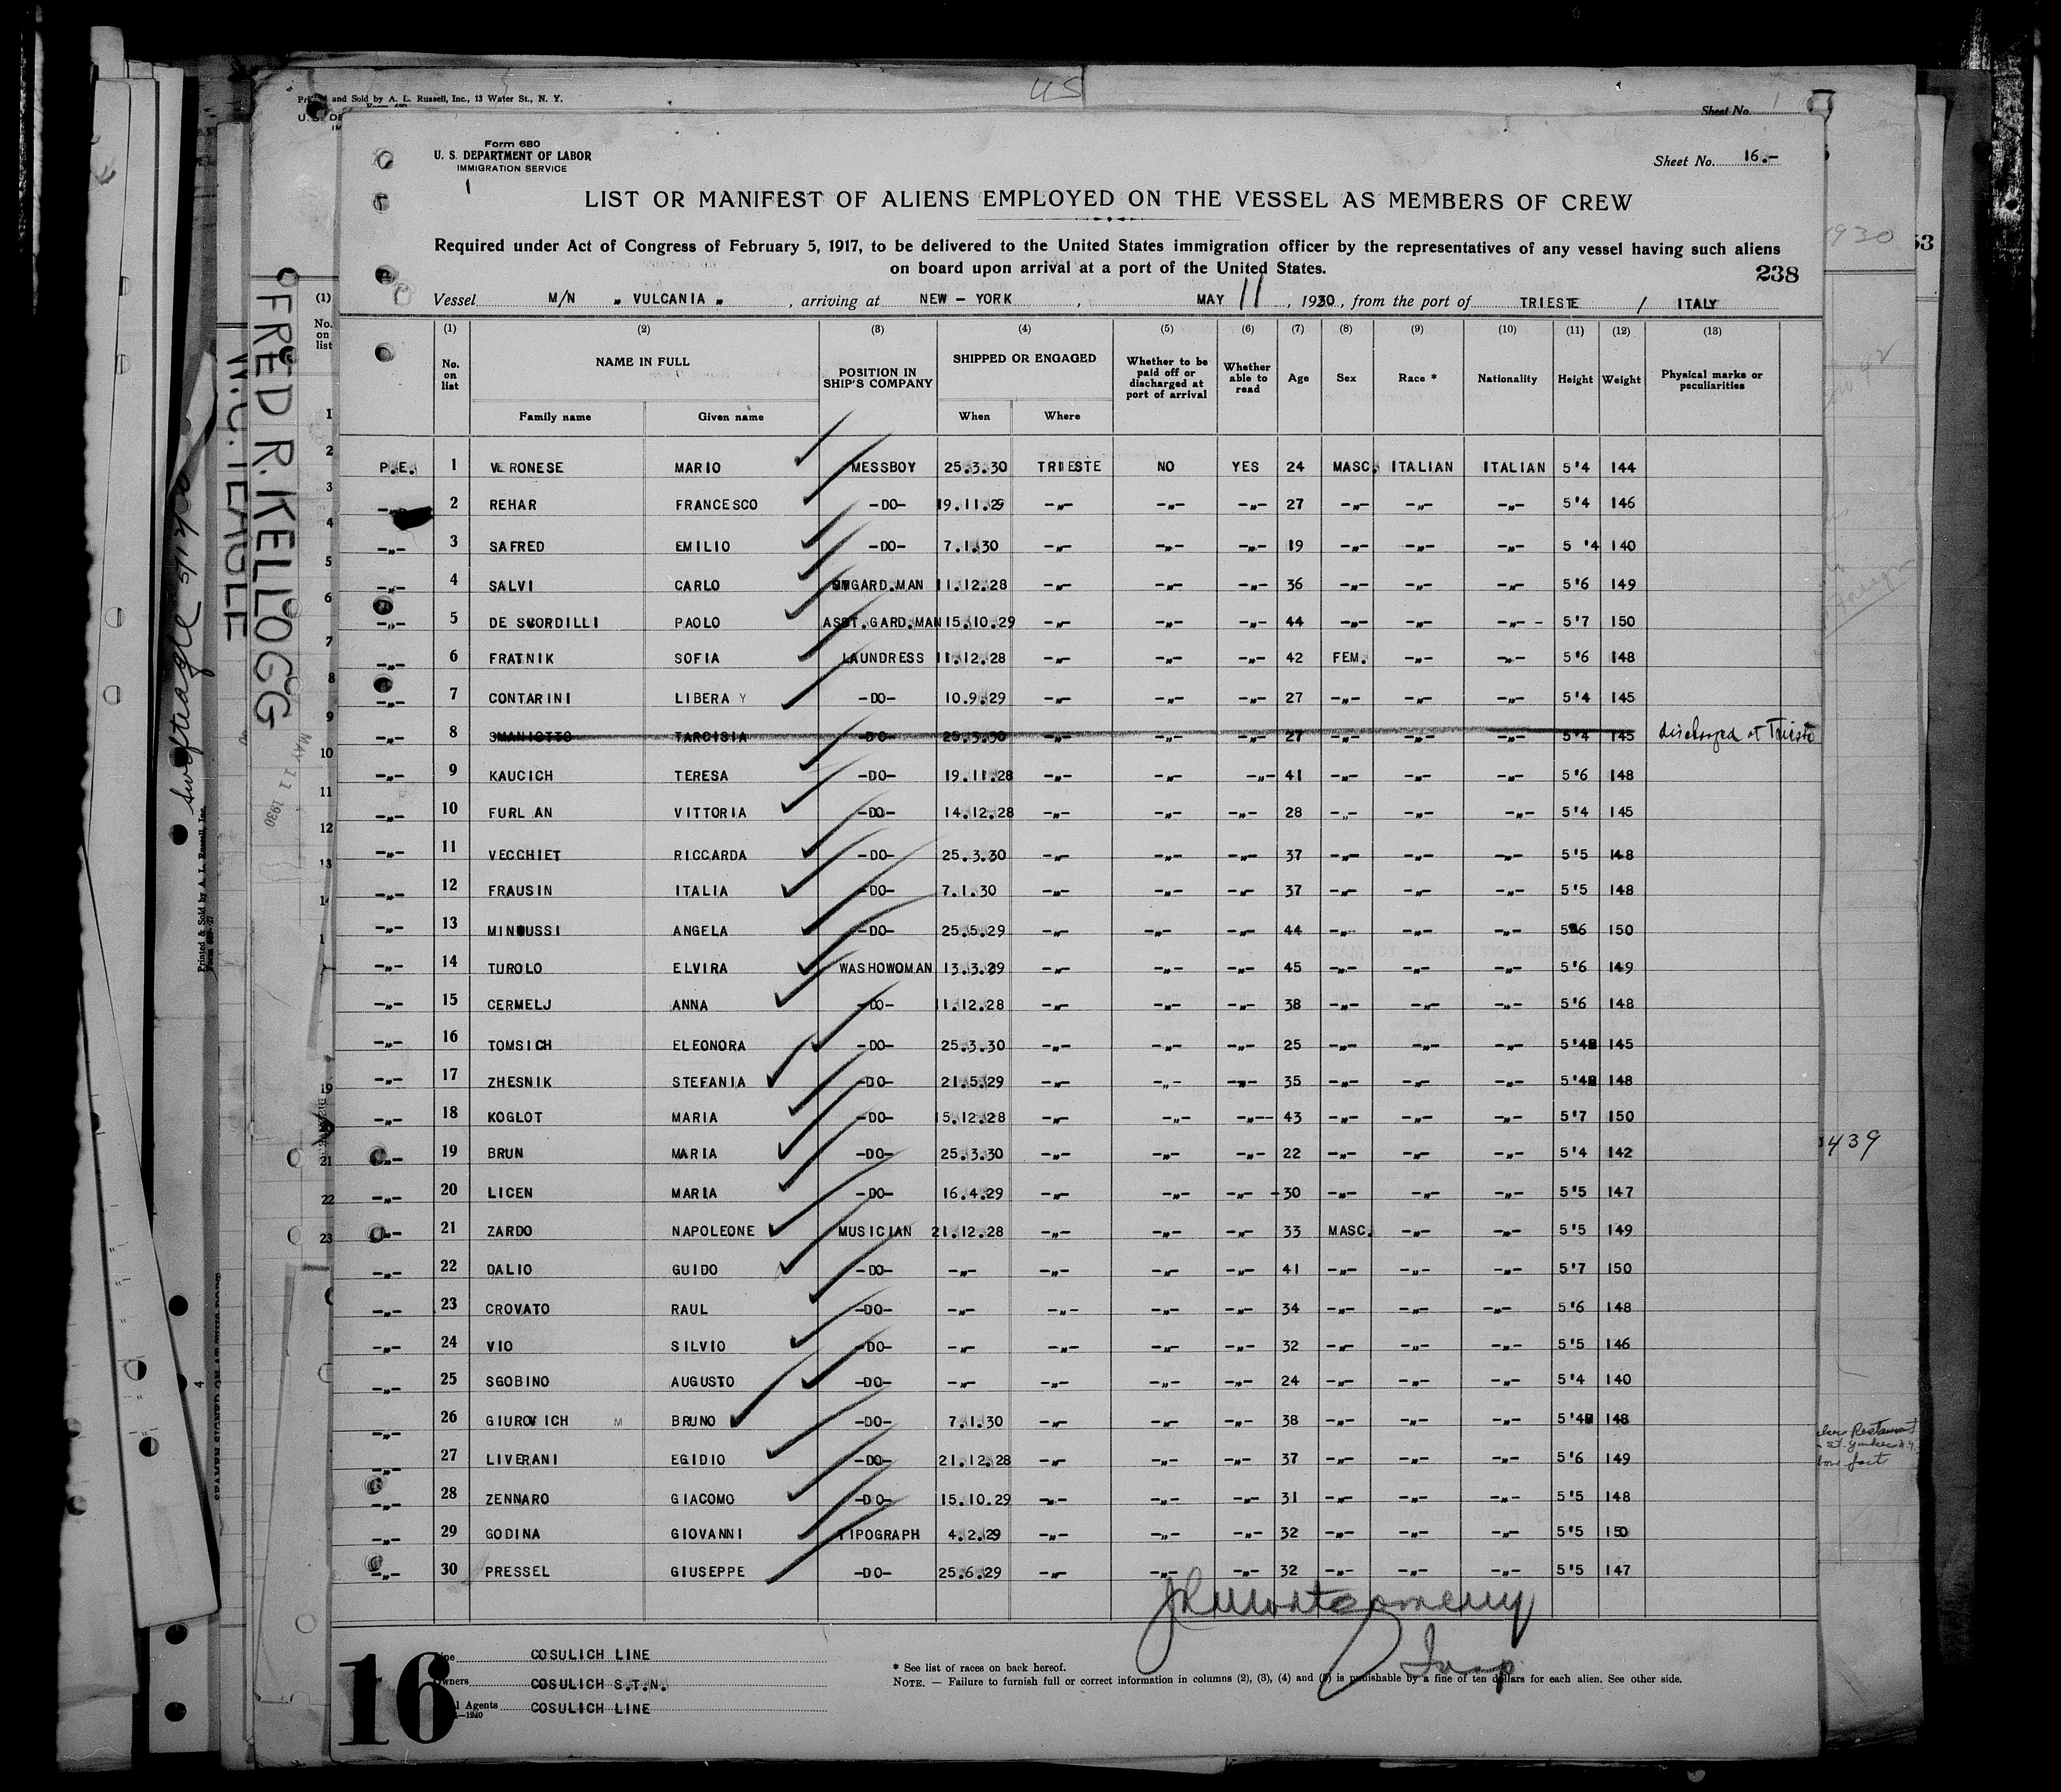 Printed and Sold by A. L. Russell, Inc., 13 Water St., N. Y.
US
Sheet No. 1
Form 680
U. S. DEPARTMENT OF LABOR
IMMIGRATION SERVICE
Sheet No. 16.-
LIST OR MANIFEST OF ALIENS EMPLOYED ON THE VESSEL AS MEMBERS OF CREW
Required under Act of Congress of February 5, 1917, to be delivered to the United States immigration officer by the representatives of any vessel having such aliens
on board upon arrival at a port of the United States.
238
Vessel M/N „ VULCANIA „ , arriving at NEW - YORK , MAY 11 , 1930, from the port of TRIESTE / ITALY
(1) (2) (3) (4) (5) (6) (7) (8) (9) (10) (11) (12) (13)
No. on list NAME IN FULL POSITION IN SHIP'S COMPANY SHIPPED OR ENGAGED Whether to be paid off or discharged at port of arrival Whether able to read Age Sex Race * Nationality Height Weight Physical marks or peculiarities
Family name Given name When Where
P.E. 1 VERONESE MARIO MESSBOY 25.3.30 TRIESTE NO YES 24 MASC. ITALIAN ITALIAN 5'4 144
-„- 2 REHAR FRANCESCO -DO- 19.11.29 -„- -„- -„- 27 -„- -„- -„- 5'4 146
-„- 3 SAFRED EMILIO -DO- 7.1.30 -„- -„- -„- 19 -„- -„- -„- 5 '4 140
-„- 4 SALVI CARLO GARD.MAN 11.12.28 -„- -„- -„- 36 -„- -„- -„- 5'6 149
-„- 5 DE SCORDILLI PAOLO ASST.GARD.MAN 15.10.29 -„- -„- -„- 44 -„- -„- -„- - 5'7 150
-„- 6 FRATNIK SOFIA LAUNDRESS 11.12.28 -„- -„- -„- 42 FEM. -„- -„- 5'6 148
-„- 7 CONTARINI LIBERA Y -DO- 10.9.29 -„- -„- -„- 27 -„- -„- -„- 5'4 145
-„- 8 SMANIOTTO TARCISIA -DO- 25.3.30 -„- -„- -„- 27 -„- -„- -„- 5'4 145 discharged at Trieste
-„- 9 KAUCICH TERESA -DO- 19.11.28 -„- -„- -„- 41 -„- -„- -„- 5'6 148
-„- 10 FURLAN VITTORIA -DO- 14.12.28 -„- -„- -„- 28 -„- -„- -„- 5'4 145
-„- 11 VECCHIET RICCARDA -DO- 25.3.30 -„- -„- -„- 37 -„- -„- -„- 5'5 148
-„- 12 FRAUSIN ITALIA -DO- 7.1.30 -„- -„- -„- 37 -„- -„- -„- 5'5 148
-„- 13 MINUSSI ANGELA -DO- 25.5.29 -„- -„- -„- 44 -„- -„- -„- 5'6 150
-„- 14 TUROLO ELVIRA WASHOWOMAN 13.3.29 -„- -„- -„- 45 -„- -„- -„- 5'6 149
-„- 15 CERMELJ ANNA -DO- 11.12.28 -„- -„- -„- 38 -„- -„- -„- 5'6 148
-„- 16 TOMSICH ELEONORA -DO- 25.3.30 -„- -„- -„- 25 -„- -„- -„- 5'4 145
-„- 17 ZHESNIK STEFANIA -DO- 21.5.29 -„- -„- -„- 35 -„- -„- -„- 5'4 148
-„- 18 KOGLOT MARIA -DO- 15.12.28 -„- -„- -„-- 43 -„- -„- -„- 5'7 150
-„- 19 BRUN MARIA -DO- 25.3.30 -„- -„- -„- 22 -„- -„- -„- 5'4 142
-„- 20 LICEN MARIA -DO- 16.4.29 -„- -„- -„- -30 -„- -„- -„- 5'5 147
-„- 21 ZARDO NAPOLEONE MUSICIAN 21.12.28 -„- -„- -„- 33 MASC. -„- -„- 5'5 149
-„- 22 DALIO GUIDO -DO- -„- -„- -„- -„- 41 -„- -„- -„- 5'7 150
-„- 23 CROVATO RAUL -DO- -„- -„- -„- -„- 34 -„- -„- -„- 5'6 148
-„- 24 VIO SILVIO -DO- -„- -„- -„- -„- 32 -„- -„- -„- 5'5 146
-„- 25 SGOBINO AUGUSTO -DO- -„- -„- -„- -„- 24 -„- -„- -„- 5'4 140
-„- 26 GIUROVICH M BRUNO -DO- 7.1.30 -„- -„- -„- 38 -„- -„- -„- 5'4 148
-„- 27 LIVERANI EGIDIO -DO- 21.12.28 -„- -„- -„- 37 -„- -„- -„- 5'6 149
-„- 28 ZENNARO GIACOMO -DO- 15.10.29 -„- -„- -„- 31 -„- -„- -„- 5'5 148
-„- 29 GODINA GIOVANNI TIPOGRAPH 4.2.29 -„- -„- -„- 32 -„- -„- -„- 5'5 150
-„- 30 PRESSEL GIUSEPPE -DO- 25.6.29 -„- -„- -„- 32 -„- -„- -„- 5'5 147
JR Montgomery
Insp
16
Line COSULICH LINE
Owners COSULICH S.T.N.
Local Agents COSULICH LINE
—1240
* See list of races on back hereof.
NOTE. — Failure to furnish full or correct information in columns (2), (3), (4) and (5) is punishable by a fine of ten dollars for each alien. See other side.
FRED R. KELLOGG
W.C. TEAGLE
MAY 11 1930
Printed & Sold by A. L. Russell, Inc.
1930
53
42
439
Restaurant